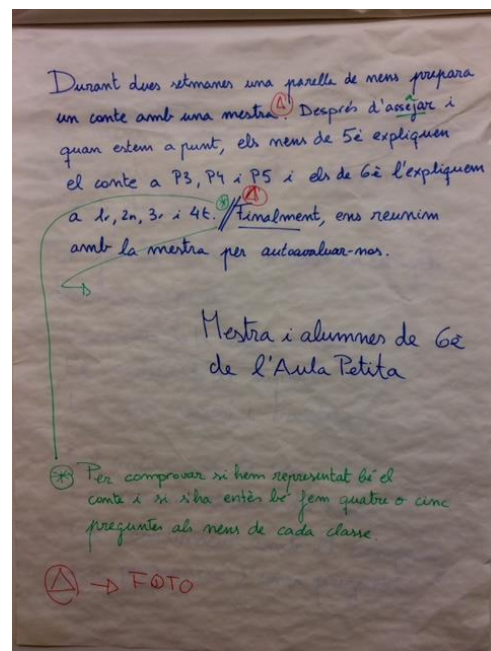 Durant dues setmanes una parella de nens prepara
un conte amb una mestra. Després d'assejar i
quan estem a punt, els nens de 5è expliquen
el conte a P3, P4 i P5 i els de 6è l'expliquem
a 1r, 2n, 3r i 4t. // Finalment, ens reunim
amb la mestra per autoavaluar-nos.
Mestra i alumnes de 6è
de l'Aula Petita
* Per comprovar si hem representat bé el
conte i si s'ha entès bé fem quatre o cinc
preguntes als nens de cada classe.
△ → FOTO